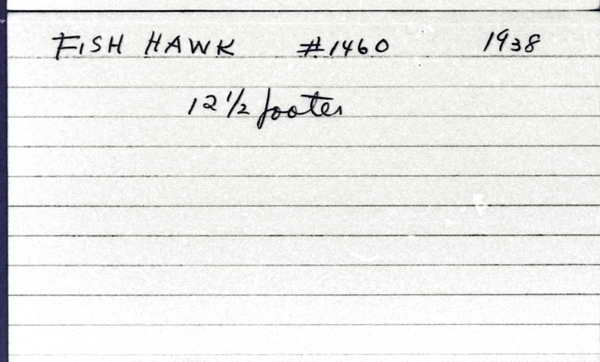 FISH HAWK #1460 1938
12 1/2 footer